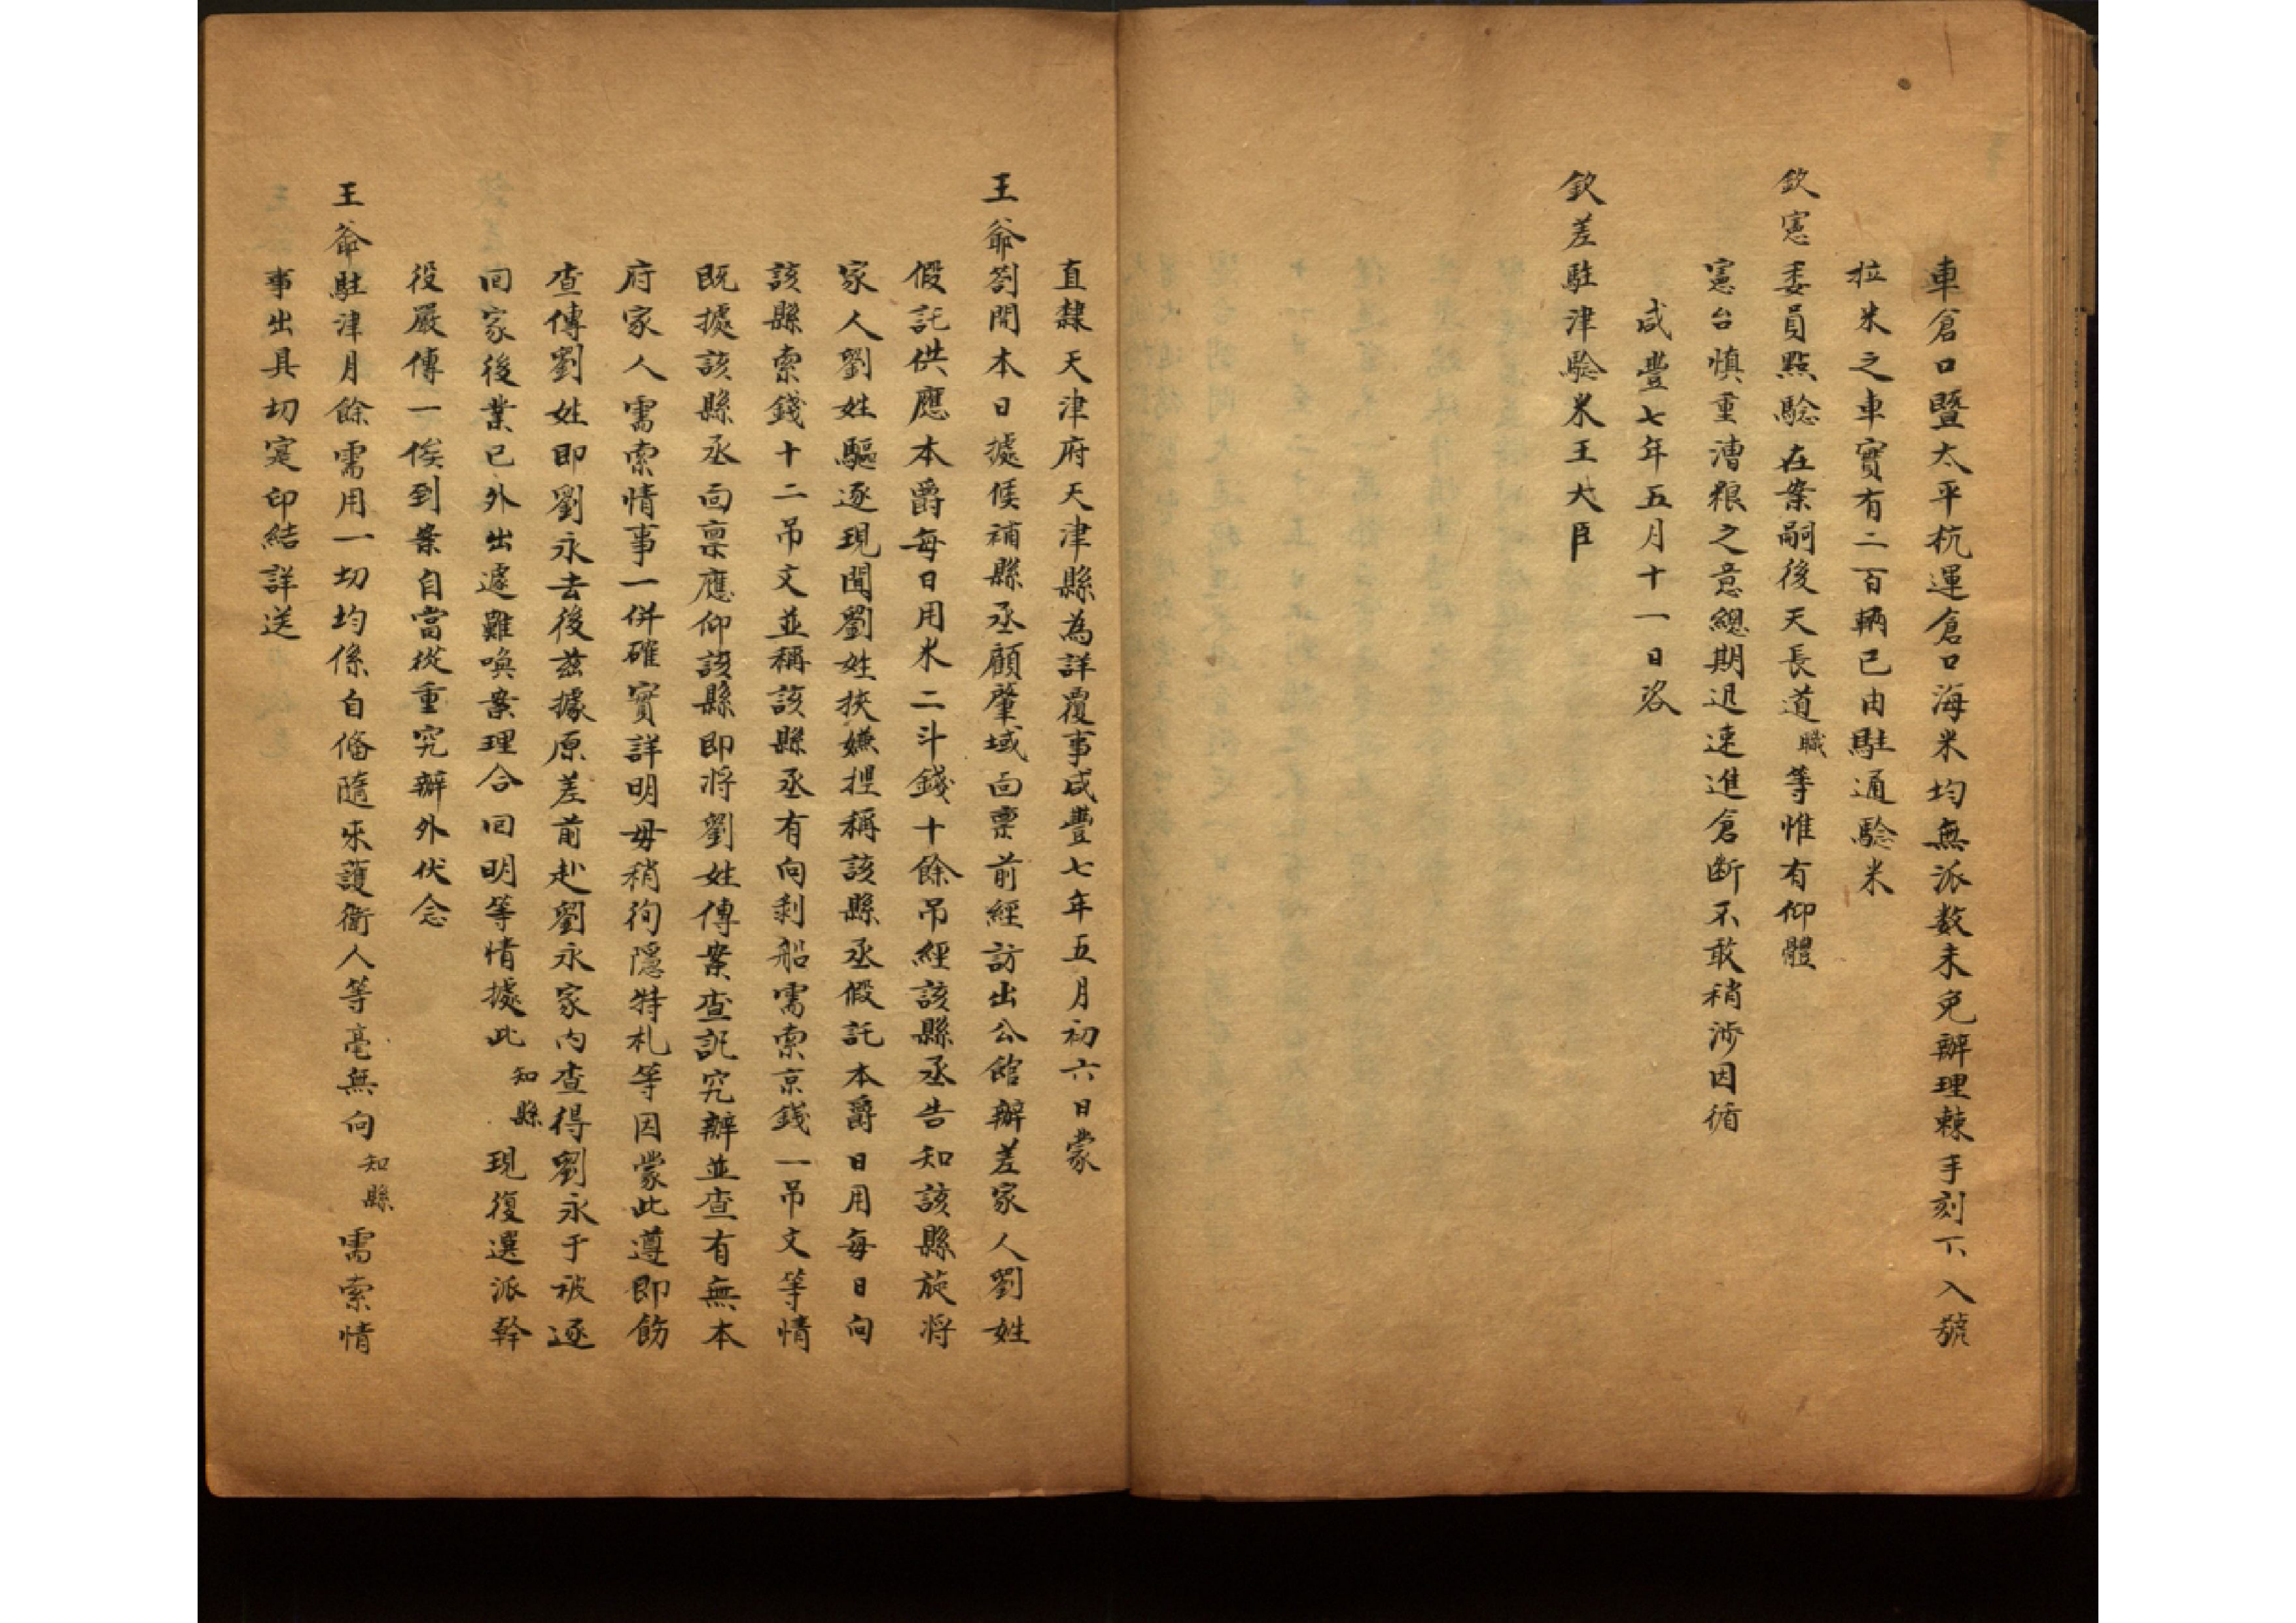 車倉口暨太平杭運倉口海米均無派数未免辦理棘手刻下入號
拉米之車實有二百輛已由駐通驗米
欽憲委員點驗在案嗣後天長道職等惟有仰體
憲台慎重漕粮之意總期迅速進倉断不敢稍涉因循
咸豐七年五月十一日咨
欽差駐津驗米王大臣
直隸天津府天津縣為詳覆事咸豐七年五月初六日蒙
王爺劄開本日據候補縣丞顧肇域面稟前經訪出公館辦差家人劉姓
假託供應本爵每日用米二斗錢十餘吊經該縣丞告知該縣旋将
家人劉姓驅逐現聞劉姓挾嫌揑稱該縣丞假託本爵日用每日向
該縣索錢十二吊文並稱該縣丞有向剥船需索京錢一吊文等情
既據該縣丞面稟應仰該縣即将劉姓傳案查訊究辦並查有無本
府家人需索情事一併確實詳明毋稍徇隱特札等因蒙此遵即飭
查傳劉姓即劉永去後兹據原差前赴劉永家内查得劉永于被逐
回家後業已外出遽難喚案理合回明等情據此知縣現復選派幹
役嚴傳一俟到案自當從重究辦外伏念
王爺駐津月餘需用一切均係自偹隨来護衛人等毫無向知縣需索情
事出具切寔印結詳送